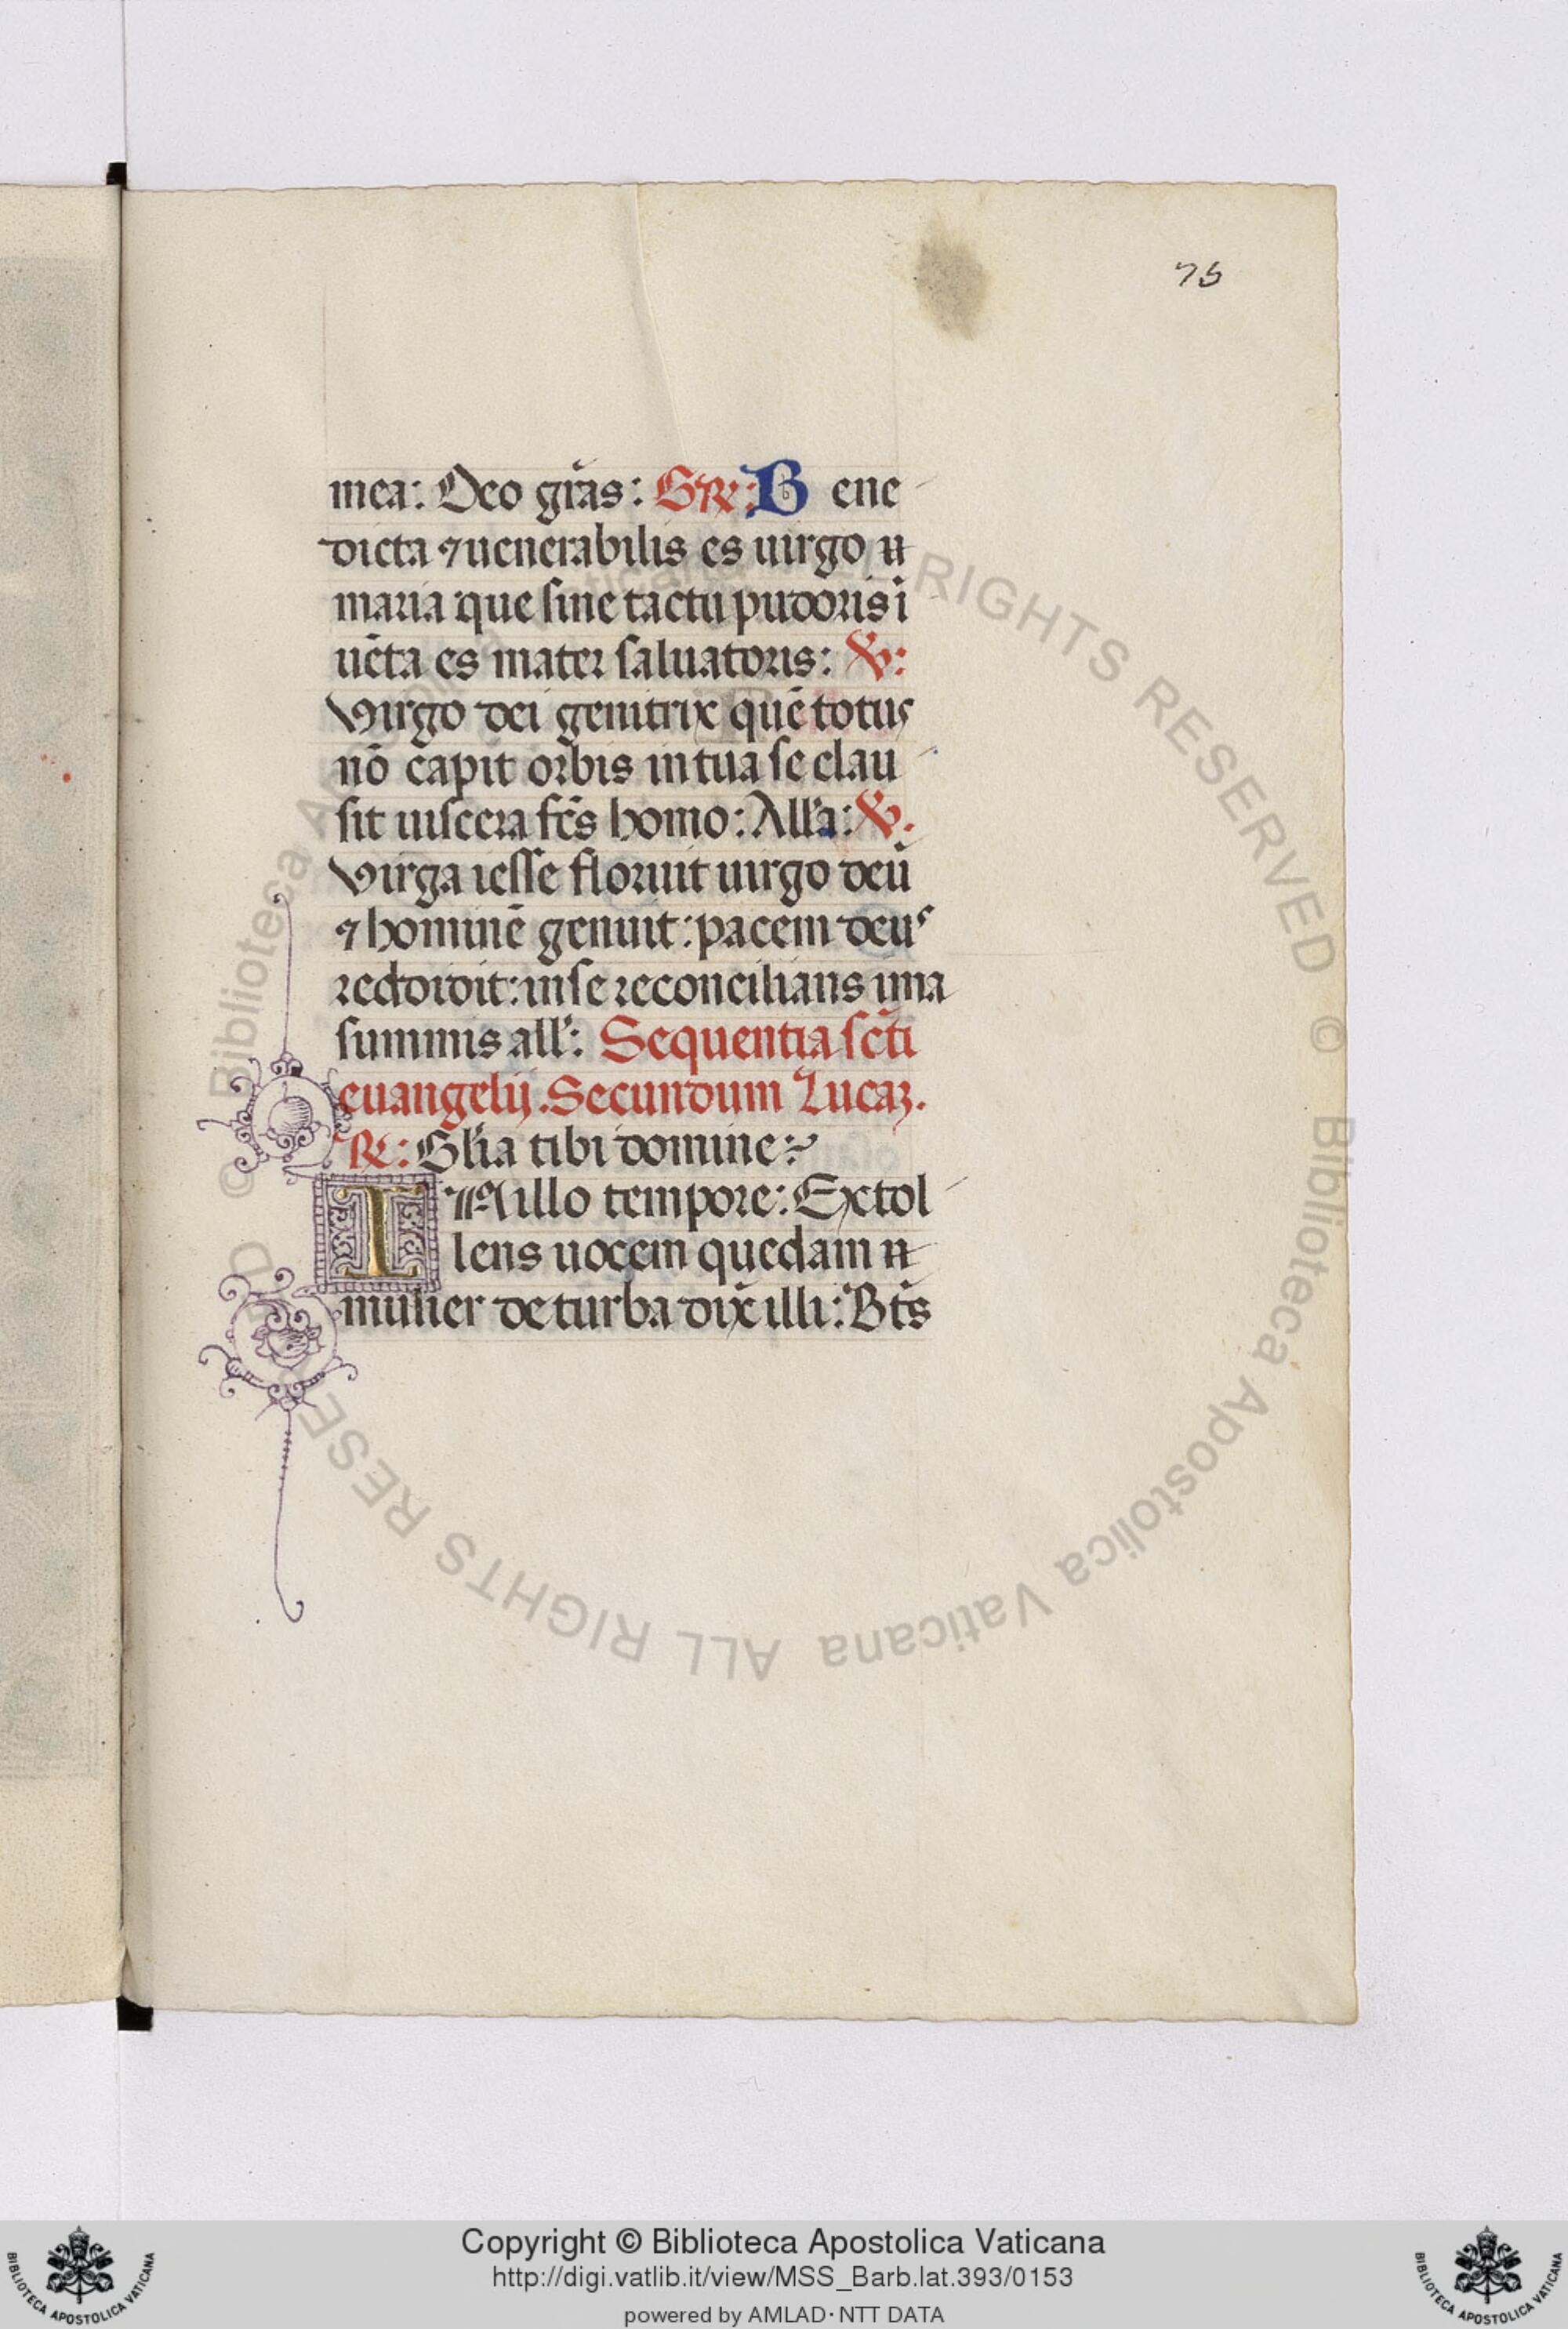 75
mea: Deo grãs: GR: B ene
dicta ⁊ uenerabilis es uirgo
maria que sine tactu pudoris ī
uēta es mater saluatoris: ℣:
Virgo dei genitrix quē totus
nō capit orbis in tua se clau
sit uiscera fc̄s homo: All'a: ℣.
Virga iesse floruit uirgo deū
⁊ hominē genuit: pacem deus
reddidit: in se reconcilians ima
summis all': Sequentia sc̄ti
euangelij. Secundum Lucaȝ.
℟: Gl'ia tibi domine:
IN illo tempore: Extol
lens uocem quedam
mulier de turba dix̄ illi: Bt̄s
© Biblioteca Apostolica Vaticana ALL RIGHTS RESERVED © Biblioteca Apostolica Vaticana ALL RIGHTS RESERVED
Copyright © Biblioteca Apostolica Vaticana
http://digi.vatlib.it/view/MSS_Barb.lat.393/0153
powered by AMLAD · NTT DATA
BIBLIOTECA APOSTOLICA VATICANA
BIBLIOTECA APOSTOLICA VATICANA